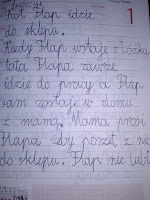 Kot Flap idzie
do sklepu.
1
Kiedy Flap wstaje z łóżka
tata Flapa zawsze
idzie do pracy a Flap
sam zostaje w domu
z mamą. Mama prosi
Flapa żeby poszet z nią
do sklepu. Flap nie lubi